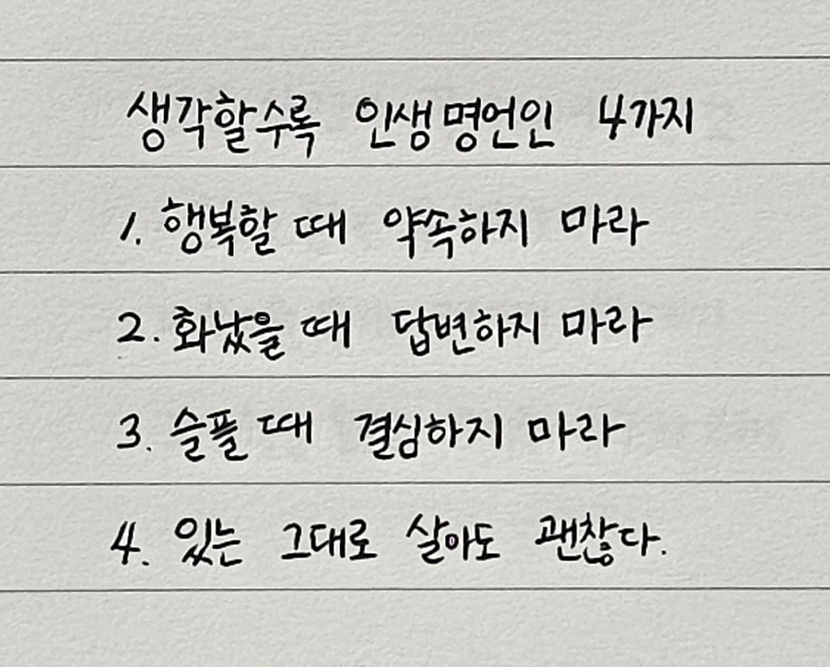 생각할수록 인생명언인 4가지
1. 행복할 때 약속하지 마라
2. 화났을 때 답변하지 마라
3. 슬플 때 결심하지 마라
4. 있는 그대로 살아도 괜찮다.